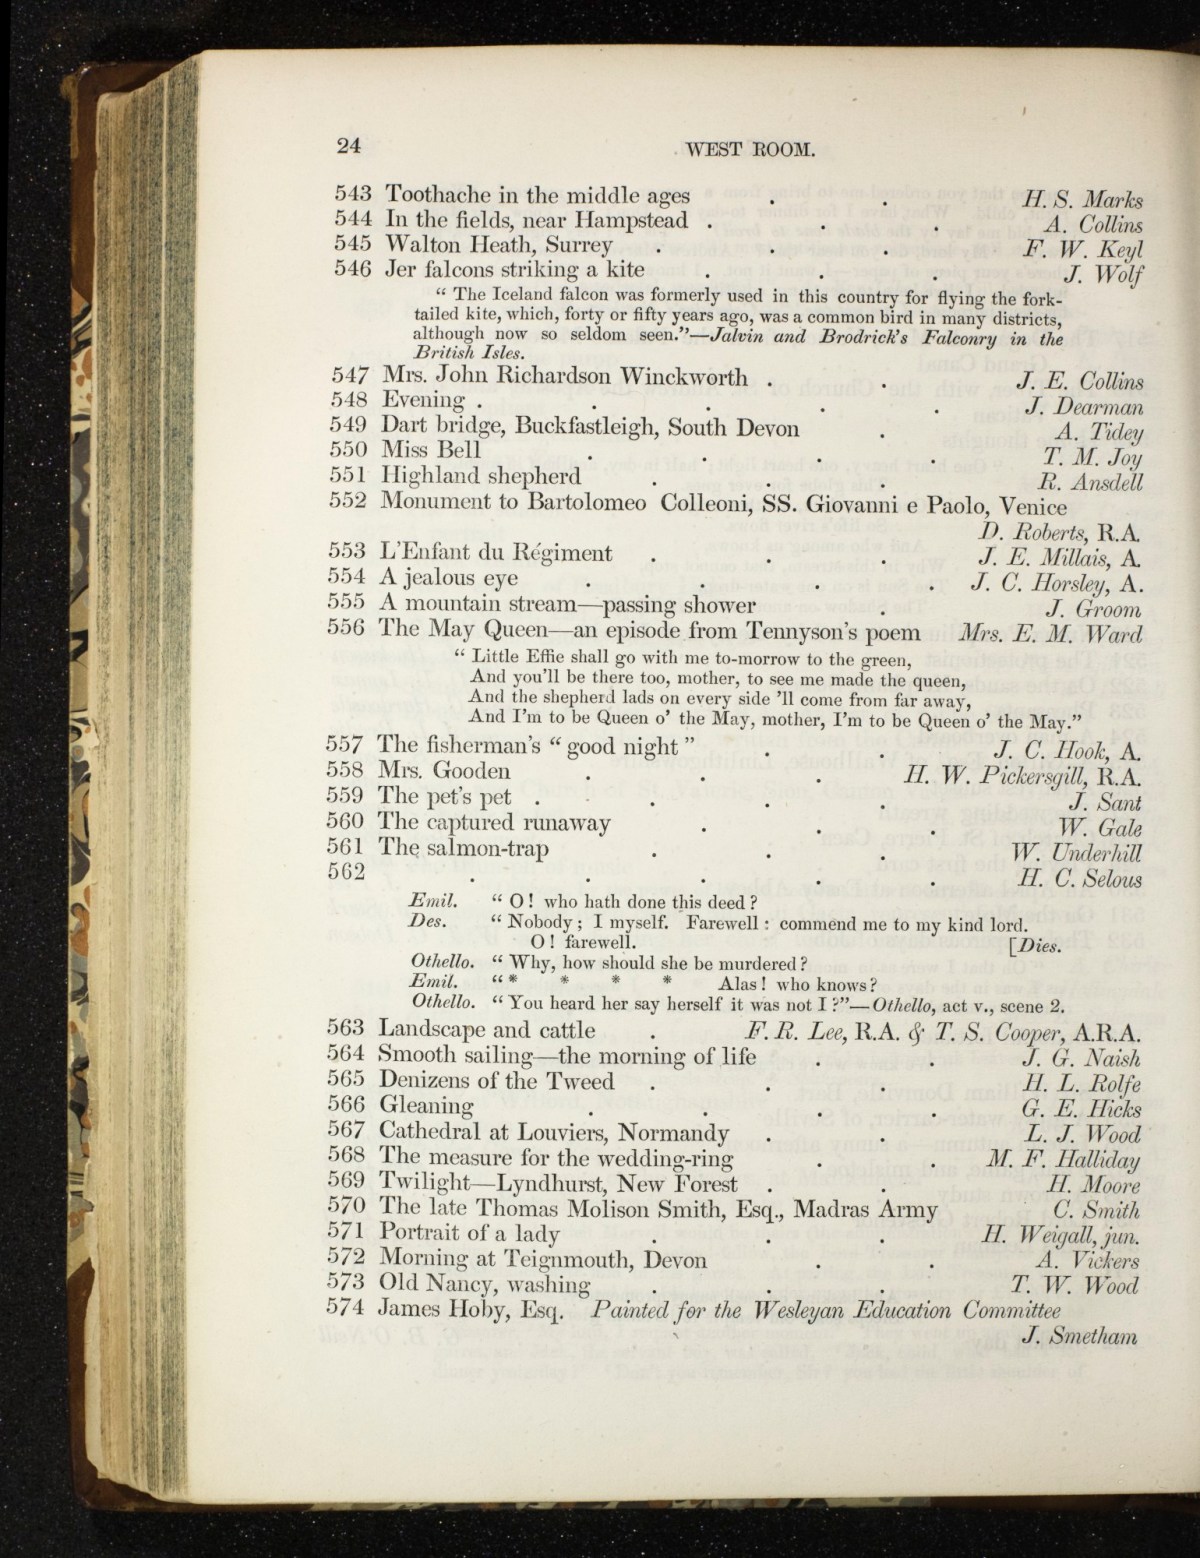 24 WEST ROOM.
543 Toothache in the middle ages . . H. S. Marks
544 In the fields, near Hampstead . . . A. Collins
545 Walton Heath, Surrey . . . F. W. Keyl
546 Jer falcons striking a kite . . . J. Wolf
“ The Iceland falcon was formerly used in this country for flying the fork-
tailed kite, which, forty or fifty years ago, was a common bird in many districts,
although now so seldom seen.”—Jalvin and Brodrick's Falconry in the
British Isles.
547 Mrs. John Richardson Winckworth . . J. E. Collins
548 Evening . . . . . J. Dearman
549 Dart bridge, Buckfastleigh, South Devon . A. Tidey
550 Miss Bell . . . . T. M. Joy
551 Highland shepherd . . . R. Ansdell
552 Monument to Bartolomeo Colleoni, SS. Giovanni e Paolo, Venice
D. Roberts, R.A.
553 L'Enfant du Régiment . . . J. E. Millais, A.
554 A jealous eye . . . . J. C. Horsley, A.
555 A mountain stream—passing shower . J. Groom
556 The May Queen—an episode from Tennyson's poem Mrs. E. M. Ward
“ Little Effie shall go with me to-morrow to the green,
And you'll be there too, mother, to see me made the queen,
And the shepherd lads on every side 'll come from far away,
And I'm to be Queen o' the May, mother, I'm to be Queen o' the May.”
557 The fisherman's “ good night ” . . J. C. Hook, A.
558 Mrs. Gooden . . . H. W. Pickersgill, R.A.
559 The pet's pet . . . . J. Sant
560 The captured runaway . . . W. Gale
561 The salmon-trap . . . W. Underhill
562 . . . . . H. C. Selous
Emil. “ O ! who hath done this deed ?
Des. “ Nobody ; I myself. Farewell : commend me to my kind lord.
O ! farewell. [Dies.
Othello. “ Why, how should she be murdered ?
Emil. “ * * * * Alas ! who knows ?
Othello. “ You heard her say herself it was not I ?”—Othello, act v., scene 2.
563 Landscape and cattle . F. R. Lee, R.A. & T. S. Cooper, A.R.A.
564 Smooth sailing—the morning of life . . J. G. Naish
565 Denizens of the Tweed . . . H. L. Rolfe
566 Gleaning . . . . G. E. Hicks
567 Cathedral at Louviers, Normandy . . L. J. Wood
568 The measure for the wedding-ring . . M. F. Halliday
569 Twilight—Lyndhurst, New Forest . . H. Moore
570 The late Thomas Molison Smith, Esq., Madras Army C. Smith
571 Portrait of a lady . . . H. Weigall, jun.
572 Morning at Teignmouth, Devon . . A. Vickers
573 Old Nancy, washing . . . T. W. Wood
574 James Hoby, Esq. Painted for the Wesleyan Education Committee
J. Smetham